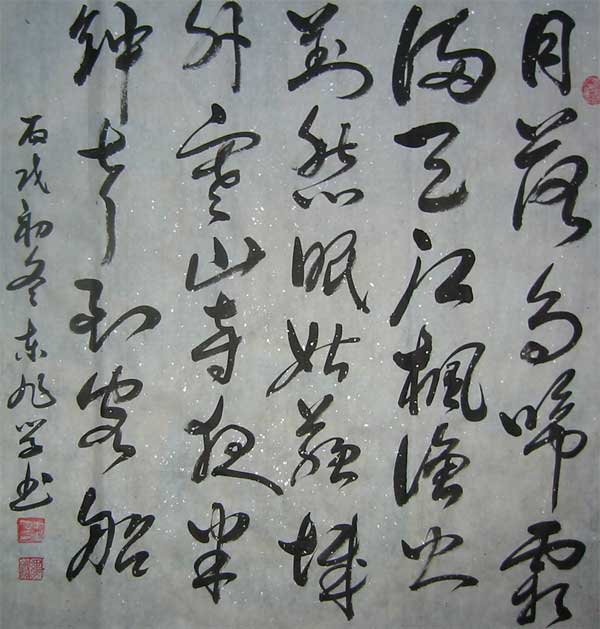 月落乌啼霜
满天江楓渔火
对愁眠姑蘇城
外寒山寺夜半
钟声到客船
丙戌初冬东旭学书